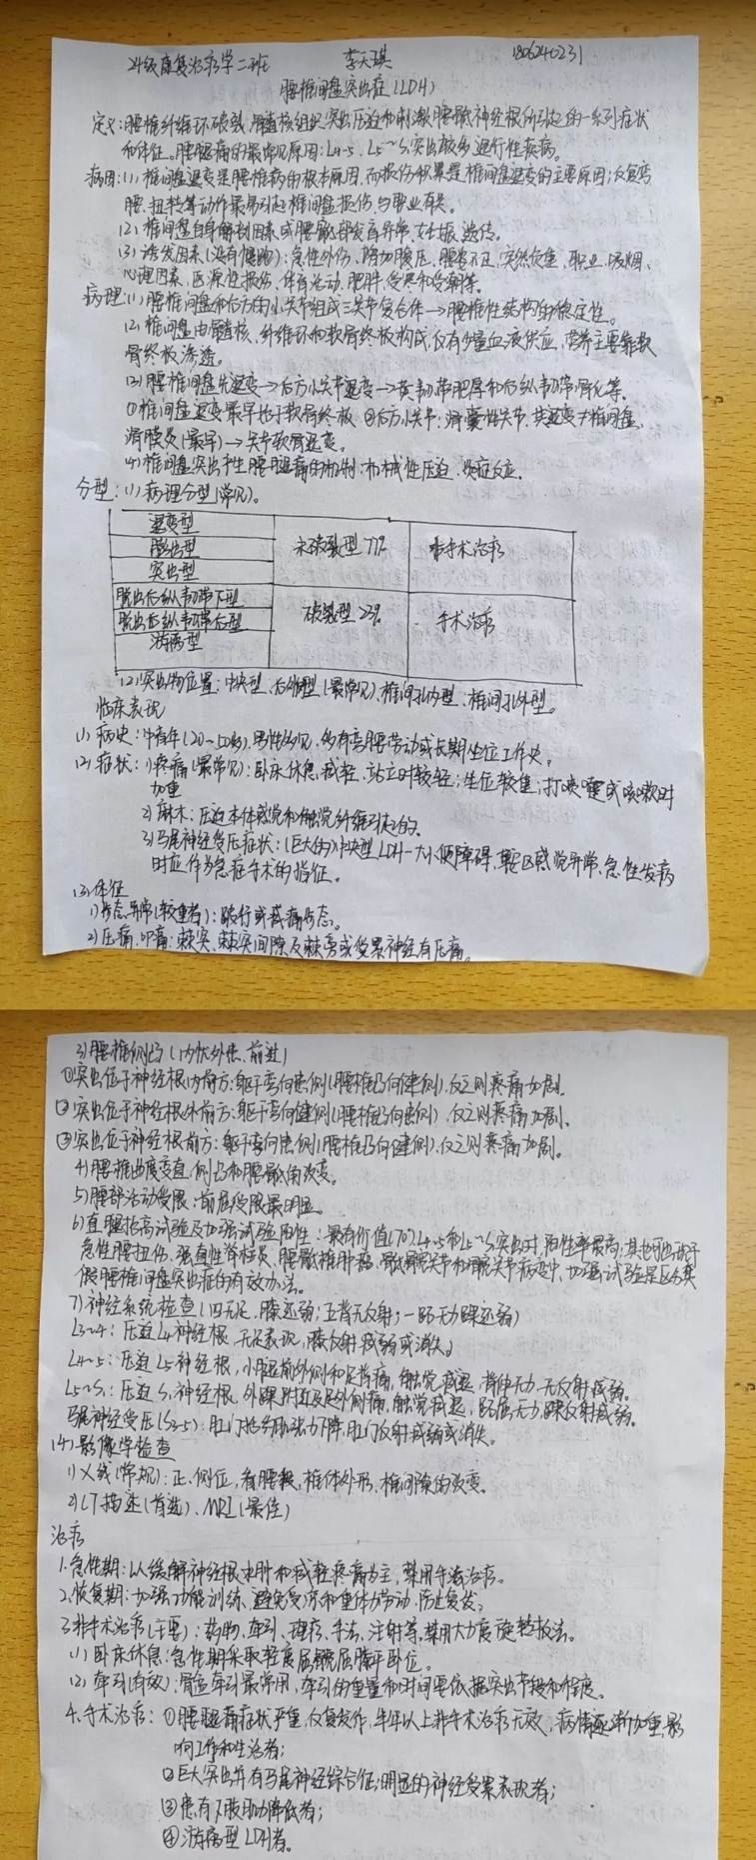 24级康复治疗学二班 李天琪 1806240231
腰椎间盘突出症(LDH)
定义:腰椎纤维环破裂,髓核组织突出压迫和刺激腰骶神经根所引起的一系列症状
和体征。腰腿痛的最常见原因:L4-5、L5~S1突出较多 退行性疾病。
病因:(1)椎间盘退变是腰椎病的根本原因,而损伤积累是椎间盘退变的主要原因;反复弯
腰、扭转等动作最易引起椎间盘损伤,与职业有关。
(2)椎间盘自身解剖因素或腰骶部发育异常、妊娠、遗传。
(3)诱发因素(没有腰椎):急性外伤、增加腹压、腰姿不正、突然负重、职业、吸烟、
心理因素、医源性损伤、体育活动、肥胖、受寒和受潮等。
病理:(1)腰椎间盘和后方的小关节组成三关节复合体→腰椎性结构的稳定性。
(2)椎间盘由髓核、纤维环和软骨终板构成,仅有少量血液供应,营养主要靠软
骨终板渗透。
(3)腰椎间盘先退变→后方小关节退变→黄韧带肥厚和后纵韧带骨化等。
①椎间盘退变最早始于软骨终板 ②后方小关节:滑囊性关节,其退变≠椎间盘,
滑膜炎(最早)→关节软骨退变。
(4)椎间盘突出产生腰腿痛的机制:机械性压迫、炎症反应。
分型:(1)病理分型(常见)。
退变型
膨出型 未破裂型 77% 非手术治疗
突出型
脱出后纵韧带下型
脱出后纵韧带后型 破裂型 23% 手术治疗
游离型
(2)突出物位置:中央型、后外侧型(最常见)、椎间孔内型、椎间孔外型。
临床表现
(1)病史:中青年(20~50岁)、男性多见,多有弯腰劳动或长期坐位工作史。
(2)症状:1)疼痛(最常见):卧床休息减轻、站立时较轻;坐位较重;打喷嚏或咳嗽时
加重
2)麻木:压迫本体感觉和触觉纤维引起的。
3)马尾神经受压症状:(巨大的)中央型LDH-大小便障碍、鞍区感觉异常、急性发病
时应作为急症手术的指征。
(3)体征
1)步态异常(较重者):跛行或减痛步态。
2)压痛、叩痛:棘突、棘突间隙及棘旁或受累神经有压痛。
3)腰椎侧凸(内忧外患、前进)
①突出位于神经根内前方:躯干弯向患侧(腰椎凸向健侧),反之则疼痛加剧。
②突出位于神经根外前方:躯干弯向健侧(腰椎凸向患侧),反之则疼痛加剧。
③突出位于神经根前方:躯干弯向患侧(腰椎凸向健侧),反之则疼痛加剧。
4)腰椎曲度变直、侧凸和腰骶角改变。
5)腰部活动受限:前屈受限最明显。
6)直腿抬高试验及加强试验阳性:最有价值(70°)L4~5和L5~S1突出时,阳性率最高;其也可出现于
急性腰扭伤、强直性脊柱炎、腰骶椎肿瘤、骶髂关节和髋关节病变中,加强试验是区分真
假腰椎间盘突出症的有效办法。
7)神经系统检查(四无足,膝还弱;五背无反射;一跖无力踝还弱)
L3~4:压迫L4神经根,无足表现,膝反射减弱或消失。
L4~5:压迫L5神经根,小腿前外侧和足背痛,触觉减退,背伸无力,无反射减弱。
L5~S1:压迫S1神经根,外踝附近及足外侧痛,触觉减退,跖屈无力,踝反射减弱。
马尾神经受压(S3-5):肛门括约肌张力下降,肛门反射减弱或消失。
(4)影像学检查
1)X线(常规):正、侧位,看腰椎、椎体外形、椎间隙的改变。
2)CT描述(首选)、MRI(最佳)
治疗
1.急性期:以缓解神经根水肿和减轻疼痛为主,禁用手法治疗。
2.恢复期:加强功能训练、避免受凉和重体力劳动,防止复发。
3.非手术治疗(主要):药物、牵引、理疗、手法、注射等,禁用大力度旋转扳法。
(1)卧床休息:急性期采取轻度屈髋屈膝平卧位。
(2)牵引(有效):骨盆牵引最常用,牵引的重量和时间要依据突出节段和程度。
4.手术治疗:①腰腿痛症状严重,反复发作,半年以上非手术治疗无效,病情逐渐加重,影
响工作和生活者;
②巨大突出并有马尾神经综合征,明显的神经受累表现者;
③患有下肢肌力降低者;
④游离型LDH者。